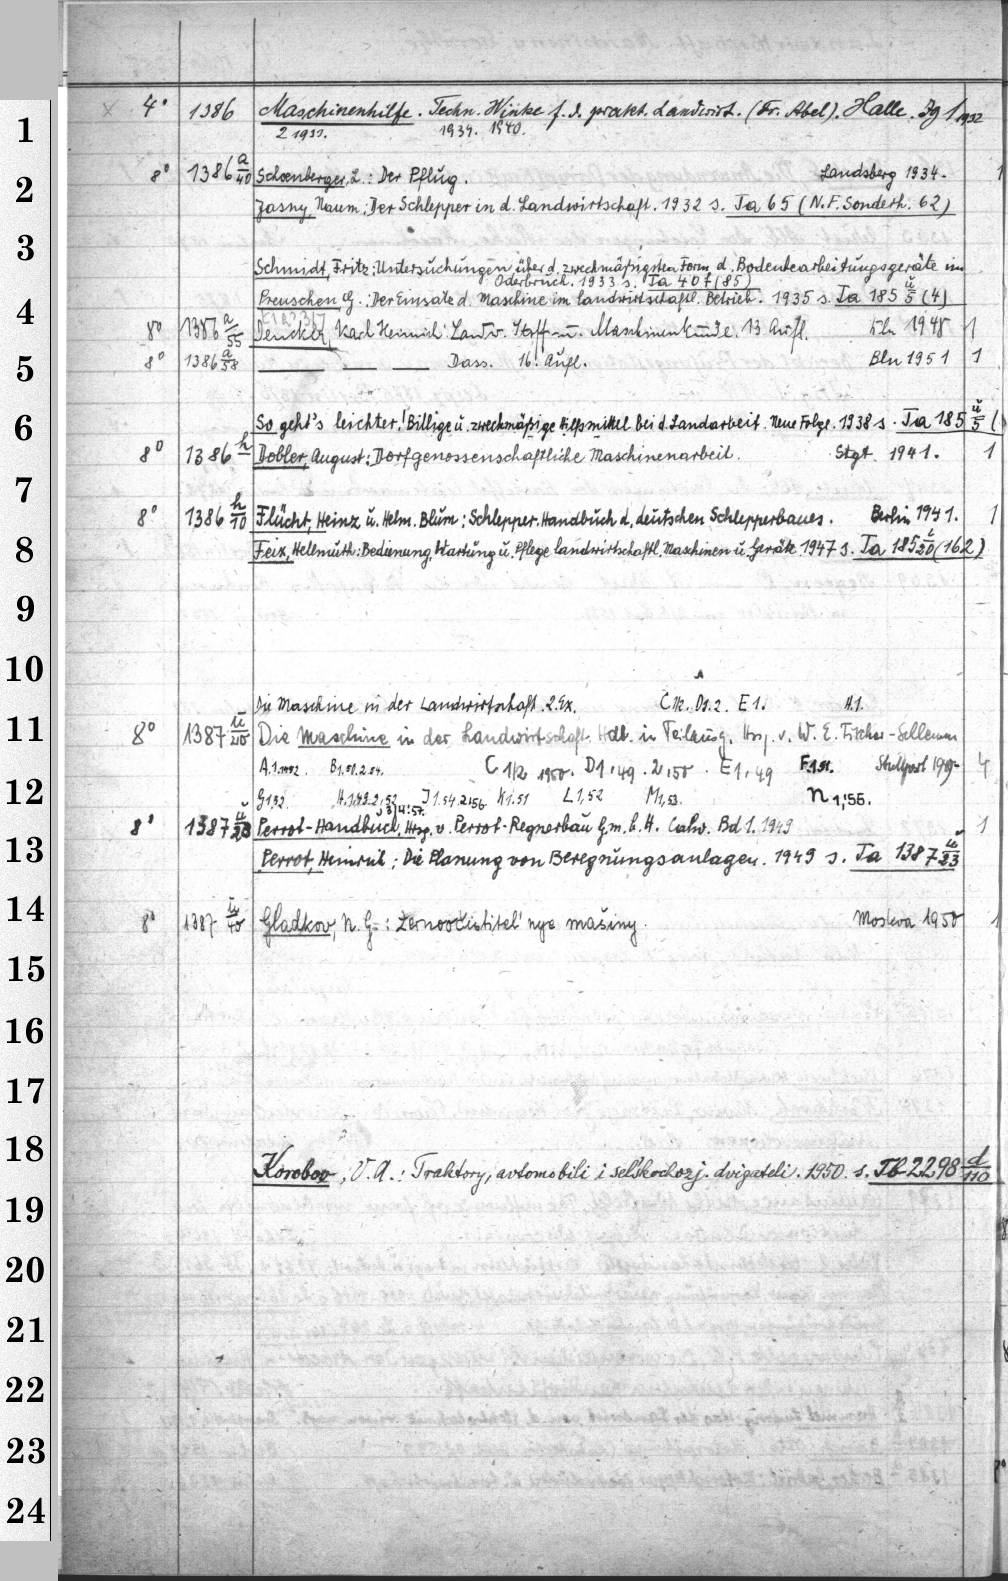 1
x 4° 1386 Maschinenhilfe. Techn. Winke f. d. prakt. Landwirt. (Fr. Abel). Halle. Jg 1 1932
2 1933. 1934. 1940.
2
8° 1386 a/40 Schoenberger, L.: Der Pflug. Landsberg 1934. 1
Jasny, Naum: Der Schlepper in d. Landwirtschaft. 1932 s. Ta 65 (N.F. Sonderh. 62)
3
Schmidt, Fritz: Untersuchungen über d. zweckmäßigsten Form d. Bodenbearbeitungsgeräte im
Oderbruch. 1933 s. Ta 407 (85)
4
Preuschen, G.: Der Einsatz d. Maschine im landwirtschaftl. Betrieb. 1935 s. Ta 185 ü/5 (4)
8° 1386 a/55 Dencker, Karl Heinrich: Landw. Stoff- u. Maschinenkunde. 13 Aufl. Bln 1948 1
5
8° 1386 a/58 Dass. 16. Aufl. Bln 1951 1
6
So geht's leichter! Billige u. zweckmäßige Hilfsmittel bei d. Landarbeit. Neue Folge. 1938 s. Ta 185 ü/5 (
8° 1386 h Dobler, August: Dorfgenossenschaftliche Maschinenarbeit. Stgt. 1941. 1
7
8° 1386 h/10 Flücht, Heinz u. Helm. Blum: Schlepper. Handbuch d. deutschen Schlepperbaues. Berlin 1941. 1
8
Feix, Hellmuth: Bedienung, Wartung u. Pflege landwirtschaftl. Maschinen u. Geräte. 1947 s. Ta 185 i/20 (162)
9
10
Die Maschine in der Landwirtschaft. 2. Ex. C 1/2. D1.2. E 1. H.1.
11
8° 1387 ü/20 Die Maschine in der Landwirtschaft. Hdb. in Teilausg. Hrsg. v. W. E. Fischer-Schlemm
A.1. B.1. C 1/2 1950. D1,49. 2,50. E1,49 F.1,51. Stuttgart 1949- 4
12
G1,52. K1.51 L1,52 M1,53. N1,55.
8° 1387 ü/23 Perrot-Handbuch, Hrsg. v. Perrot-Regnerbau G.m.b.H. Calw. Bd 1. 1949 1
13
Perrot, Heinrich: Die Planung von Beregnungsanlagen. 1949 s. Ta 1387 ü/23
14
8° 1387 ü/40 Gladkov, N. G.: Zernoočistitel'nye mašiny. Moskva 1950 1
15
16
17
18
Korobov, V. A.: Traktory, avtomobili i sel'skochozj. dvigateli. 1950. s. Tb 2298 d/110
19
20
21
22
23
24